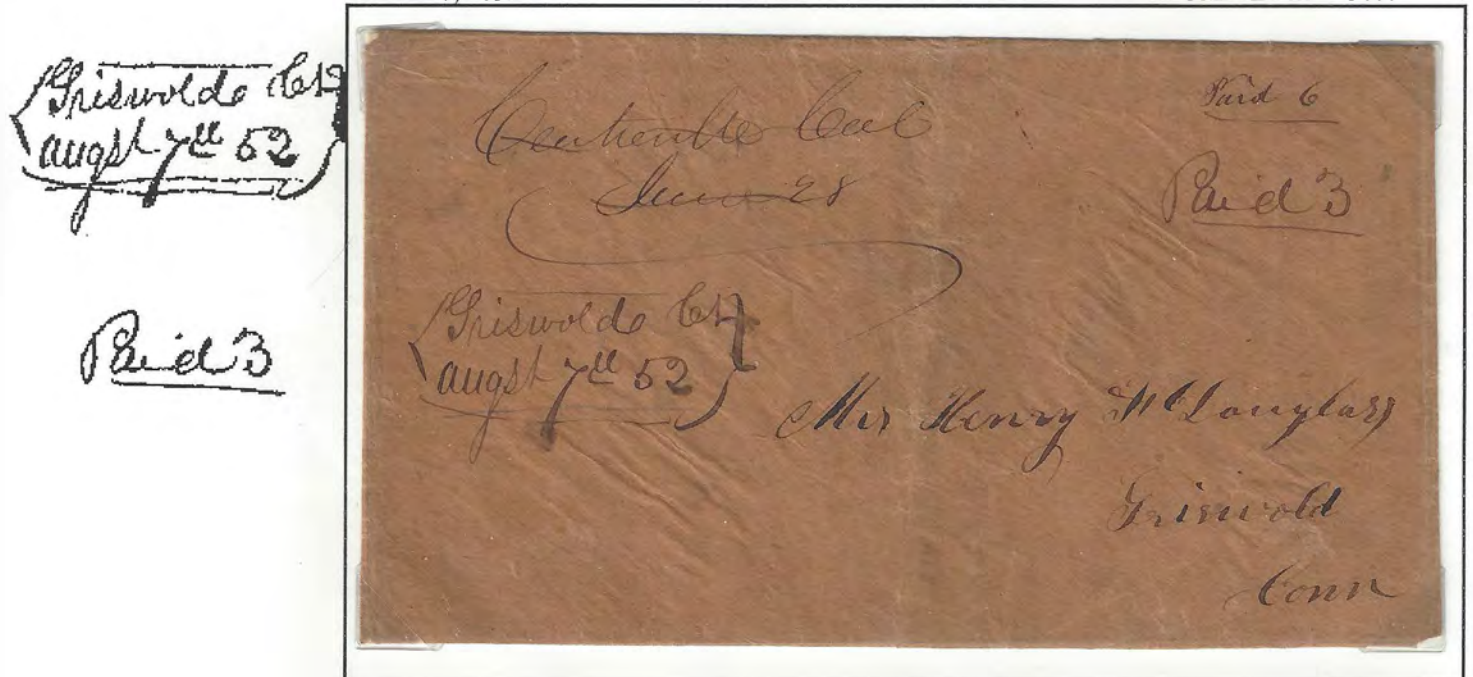 Griswolde Ct
augst 7th 52
Paid 3
Centreville Cal
June 28
Paid 6
Paid 3
Griswolde Ct
augst 7th 52
Mrs Henry Douglass
Griswold
Conn